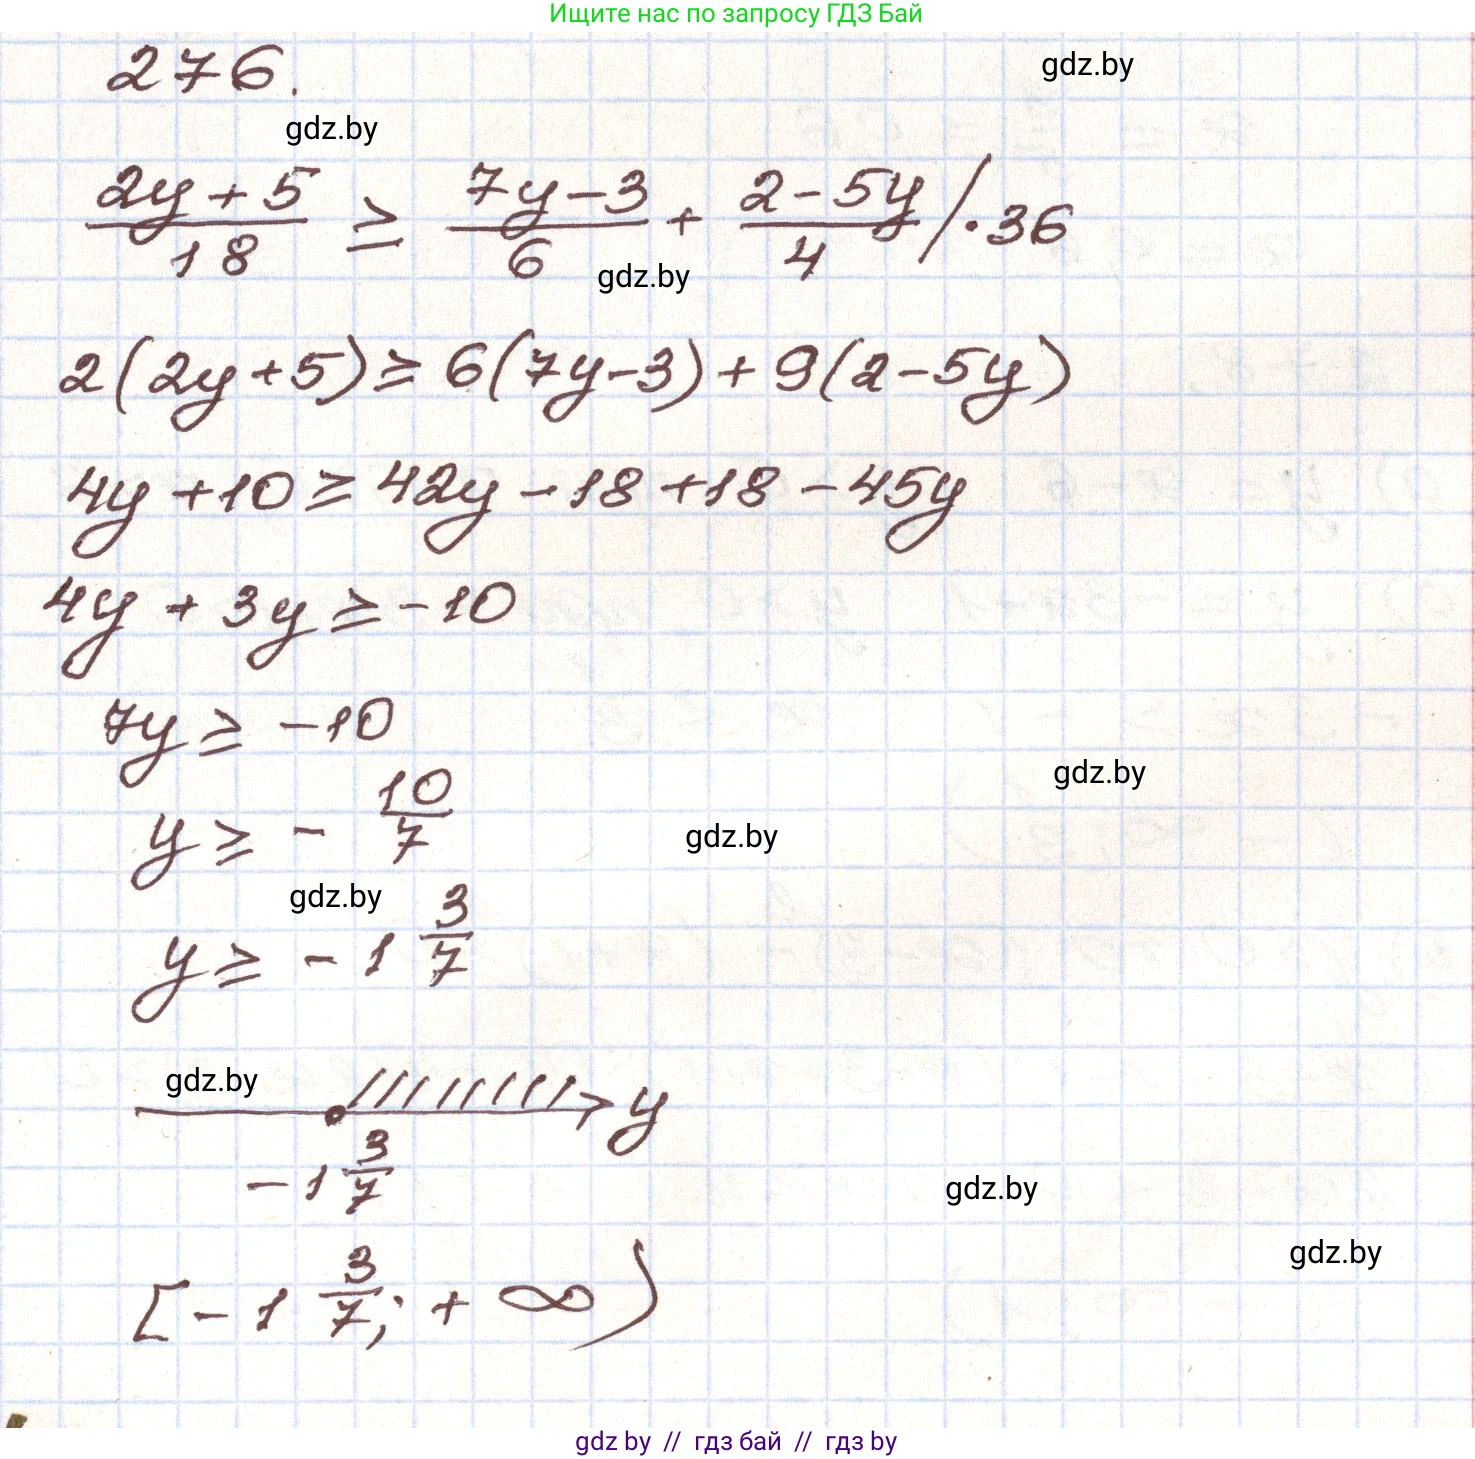 Ищите нас по запросу ГДЗ Бай
276.
gdz.by
gdz.by
(2y + 5)/18 ≥ (7y - 3)/6 + (2 - 5y)/4 / · 36
gdz.by
2(2y + 5) ≥ 6(7y - 3) + 9(2 - 5y)
4y + 10 ≥ 42y - 18 + 18 - 45y
4y + 3y ≥ -10
7y ≥ -10
gdz.by
y ≥ - 10/7
gdz.by
gdz.by
y ≥ - 1 3/7
gdz.by
y
- 1 3/7
gdz.by
gdz.by
[- 1 3/7; + ∞)
gdz by // гдз бай // гдз by